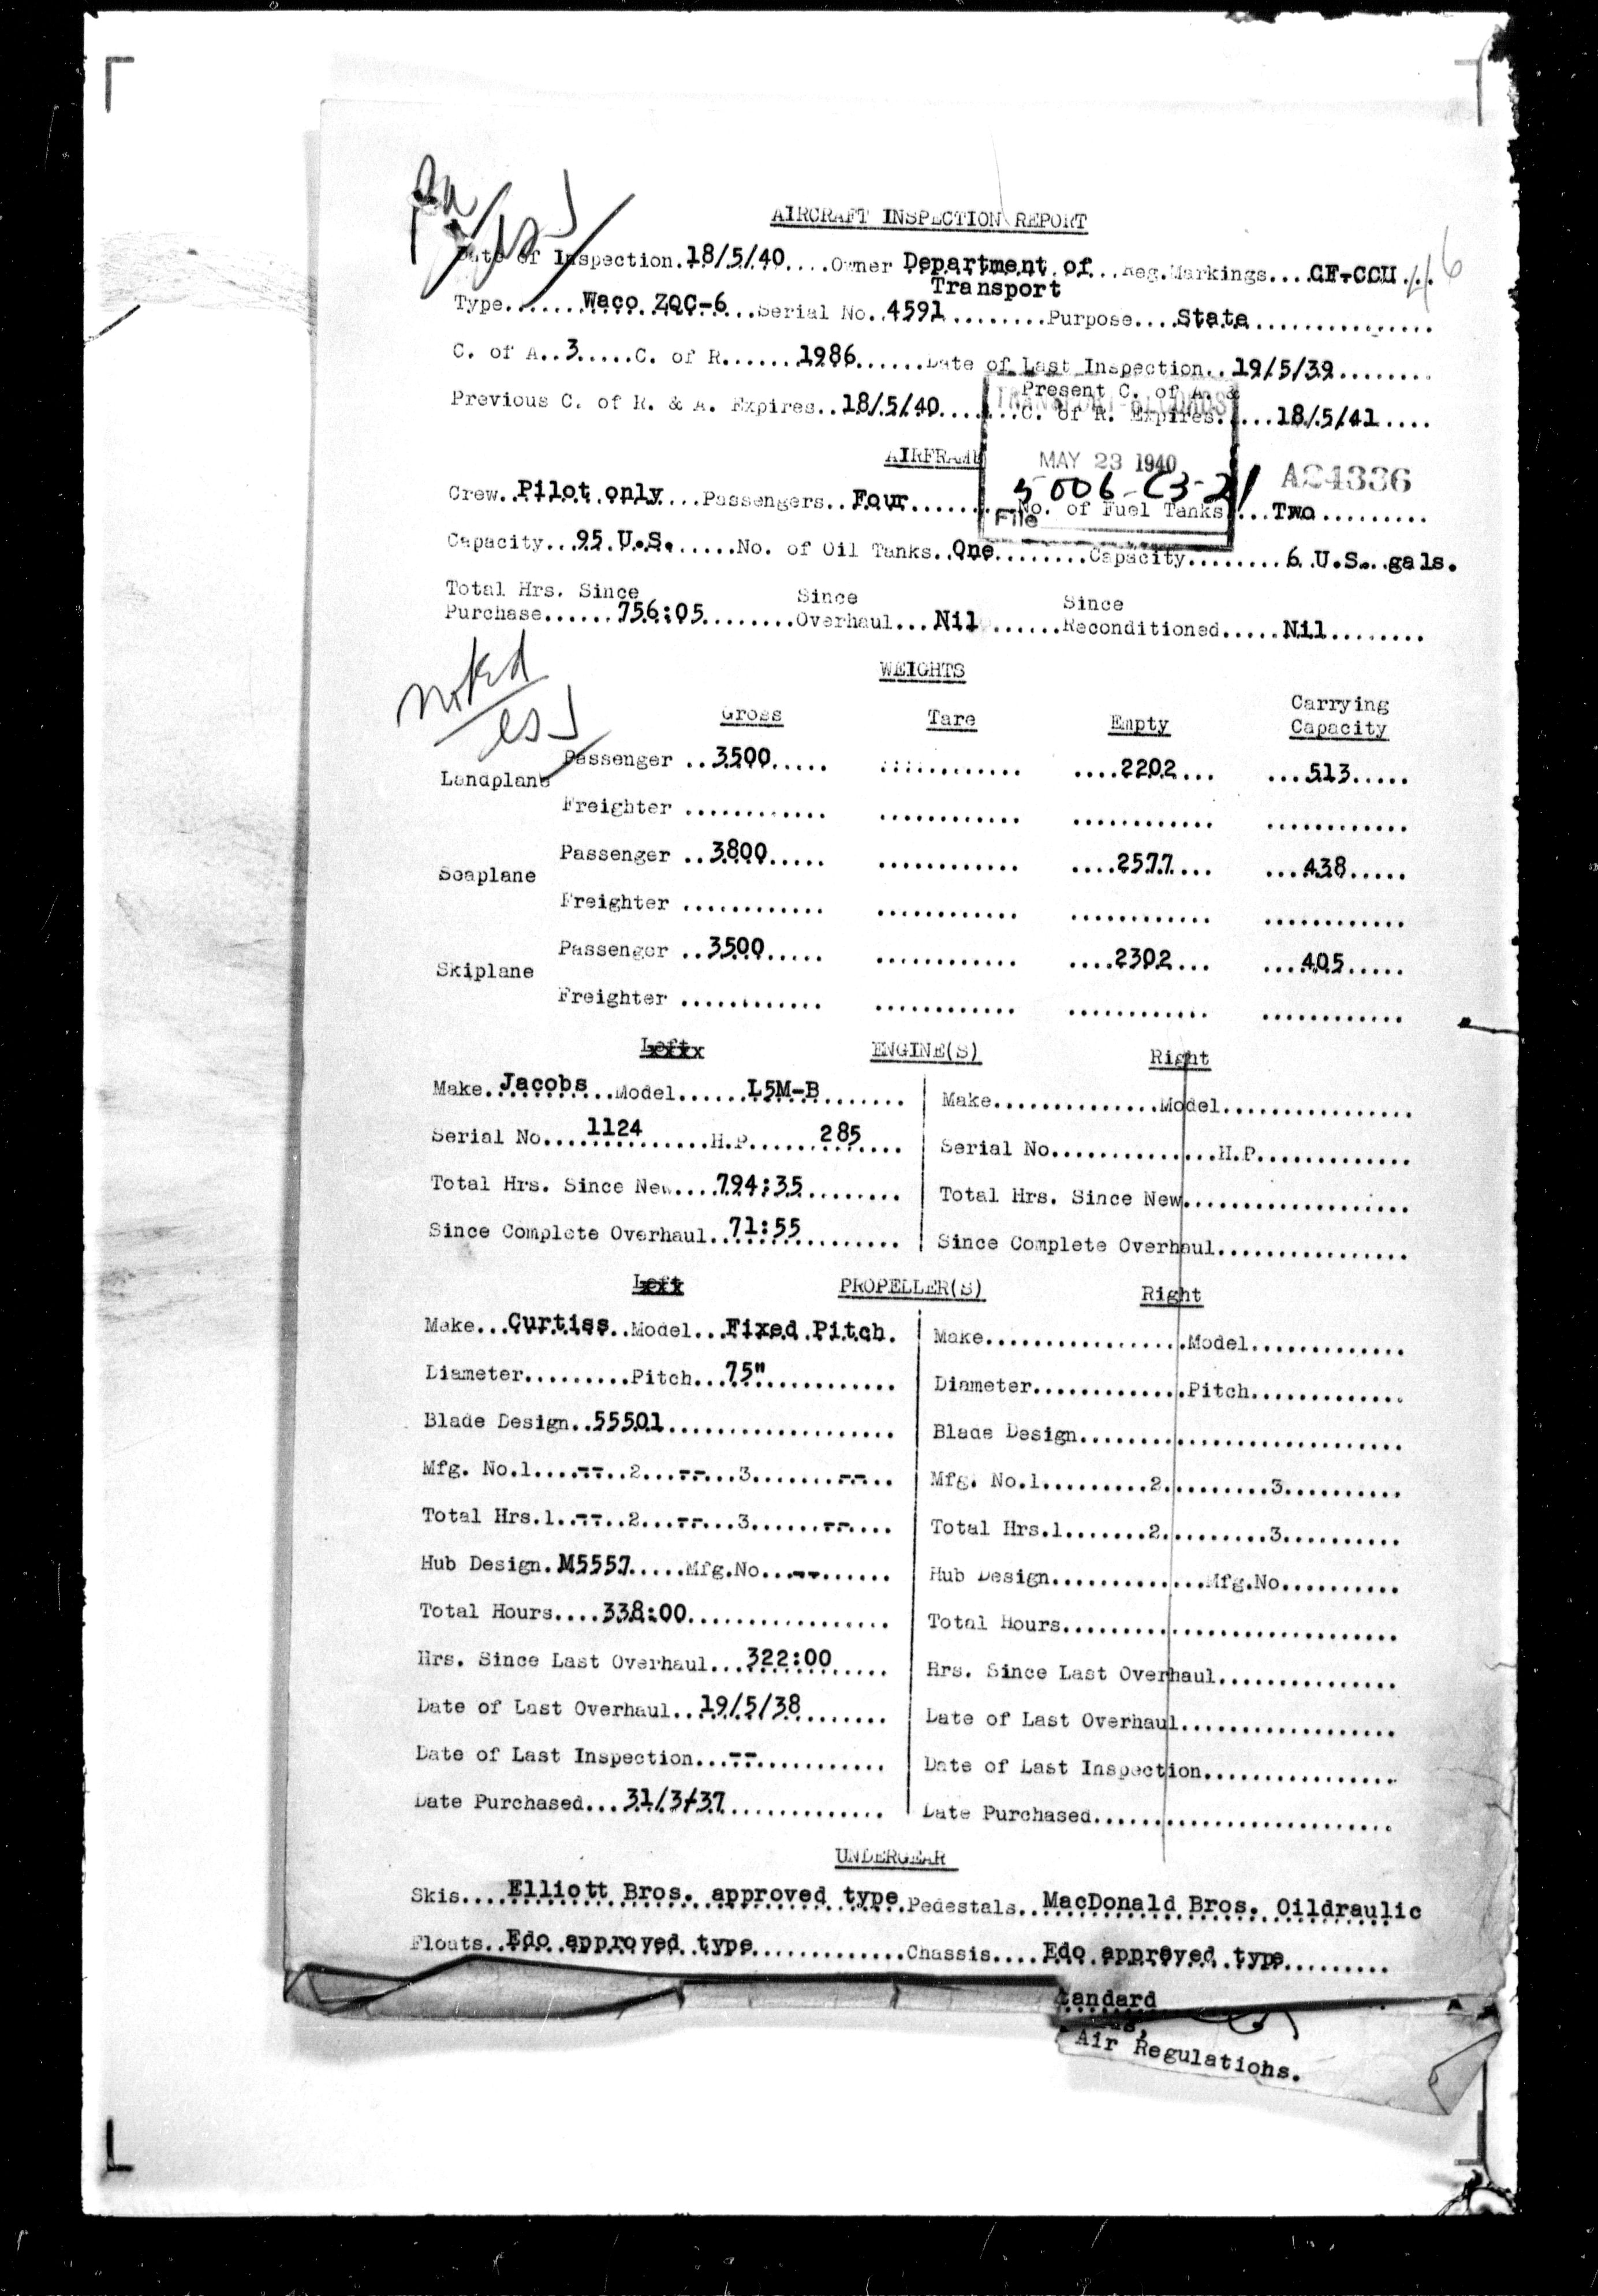 AIRCRAFT INSPECTION REPORT
Date of Inspection.18/5/40....Owner Department of...Reg.Markings....CF-CCU...46
Transport
Type.......Waco ZQC-6...Serial No..4591.........Purpose....State...............
C. of A..3.....C. of R.......1986......Date of Last Inspection..19/5/39........
Present C. of A. &
Previous C. of R. & A. Expires..18/5/40.......C. of R. Expires.....18/5/41....
TRANSPORT-RECORDS
AIRFRAME
MAY 23 1940
A24336
5006-C3-21
Crew..Pilot only...Passengers..Four........No. of Fuel Tanks....Two.........
File
Capacity..95 U.S.......No. of Oil Tanks..One........Capacity........6 U.S. gals.
Total Hrs. Since Since Since
Purchase......756:05........Overhaul...Nil......Reconditioned.....Nil........
noted
esJ
WEIGHTS
Gross Tare Empty Carrying Capacity
Landplane Passenger ..3500..... ............ ....2202... ...513.....
Freighter ............ ............ ............ ............
Seaplane Passenger ..3800..... ............ ....2577... ...438.....
Freighter ............ ............ ............ ............
Skiplane Passenger ..3500..... ............ ....2302... ...405.....
Freighter ............ ............ ............ ............
Left ENGINE(S) Right
Make.Jacobs...Model......L5M-B....... Make..............Model................
Serial No....1124......H.P......285.... Serial No..............H.P.............
Total Hrs. Since New....794:35........ Total Hrs. Since New...................
Since Complete Overhaul..71:55......... Since Complete Overhaul................
Left PROPELLER(S) Right
Make...Curtiss..Model...Fixed Pitch. Make.................Model.............
Diameter.........Pitch...75"........... Diameter.............Pitch.............
Blade Design..55501................... Blade Design...........................
Mfg. No.1....--..2...--...3.......--.. Mfg. No.1.........2..........3..........
Total Hrs.1.--..2...--...3......--.... Total Hrs.1.......2..........3..........
Hub Design.M5557.....Mfg.No...--...... Hub Design.............Mfg.No..........
Total Hours....338:00................. Total Hours............................
Hrs. Since Last Overhaul...322:00..... Hrs. Since Last Overhaul...............
Date of Last Overhaul..19/5/38....... Date of Last Overhaul..................
Date of Last Inspection...--........... Date of Last Inspection................
Date Purchased...31/3/37............. Date Purchased.........................
UNDERGEAR
Skis....Elliott Bros. approved type.Pedestals..MacDonald Bros. Oildraulic
Floats..Edo approved type.............Chassis....Edo approved type.........
tandard
Air Regulations.